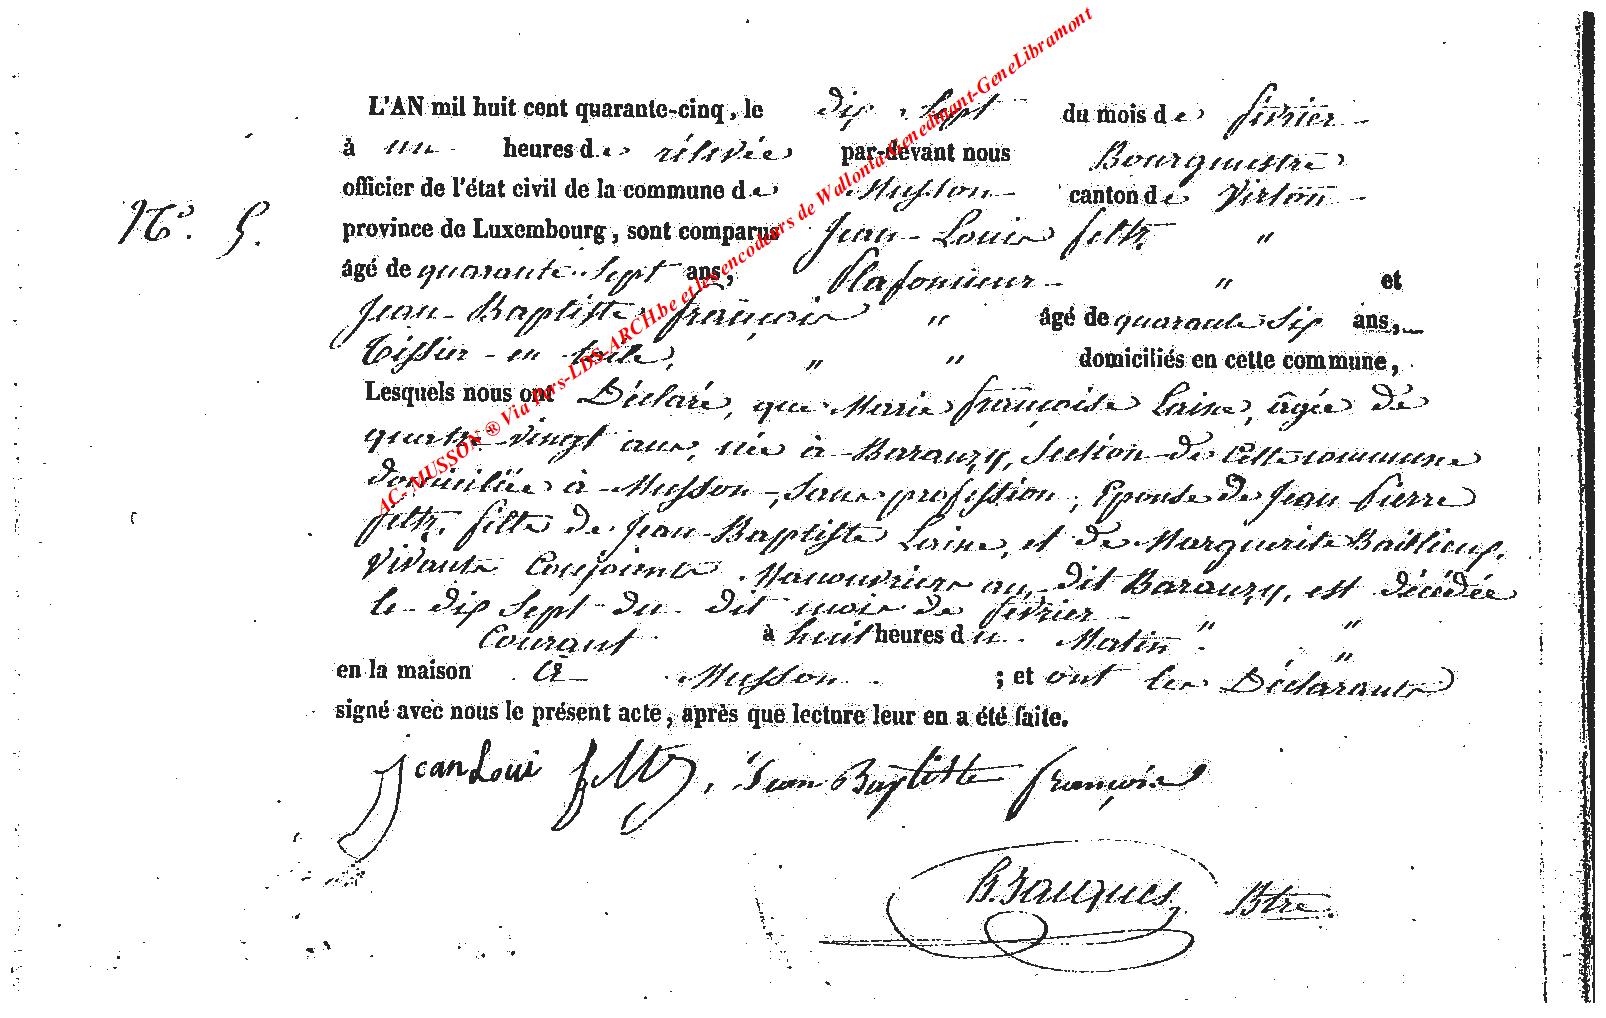 L'AN mil huit cent quarante-cinq, le dix Sept du mois de février
à un heures de rélevée par-devant nous Bourguestre
officier de l'état civil de la commune de Musson canton de Virton
N° 5. province de Luxembourg, sont comparus Jean-Louis feltz "
âgé de quarante-Sept ans, Plafonneur " et
Jean-Baptiste françois " âgé de quarante Six ans,
Tissier en toile, " " domiciliés en cette commune,
Lesquels nous ont Déclaré, que Marie françoise Laine, âgée de
quatre-vingt ans, née à Baranzy, Section de Cette commune
domiciliée à Musson, Sans profession, Epouse de Jean-Pierre
feltz. fille de Jean-Baptiste Laine, et de Marguerite Baillieux.
Vivants Conjoints Manouvriers au dit Baranzy, est décédée
le dix Sept du dit mois de février "
Courant à huit heures du Matin " "
en la maison à Musson ; et ont les Déclarants
signé avec nous le présent acte, après que lecture leur en a été faite.
Jean Loui feltz, Jean Baptiste françois
Btre.
AC-MUSSON ® Via Fars-LDS-ARCH.be et les encodeurs de Wallonia-Benedinant-GeneLibramont